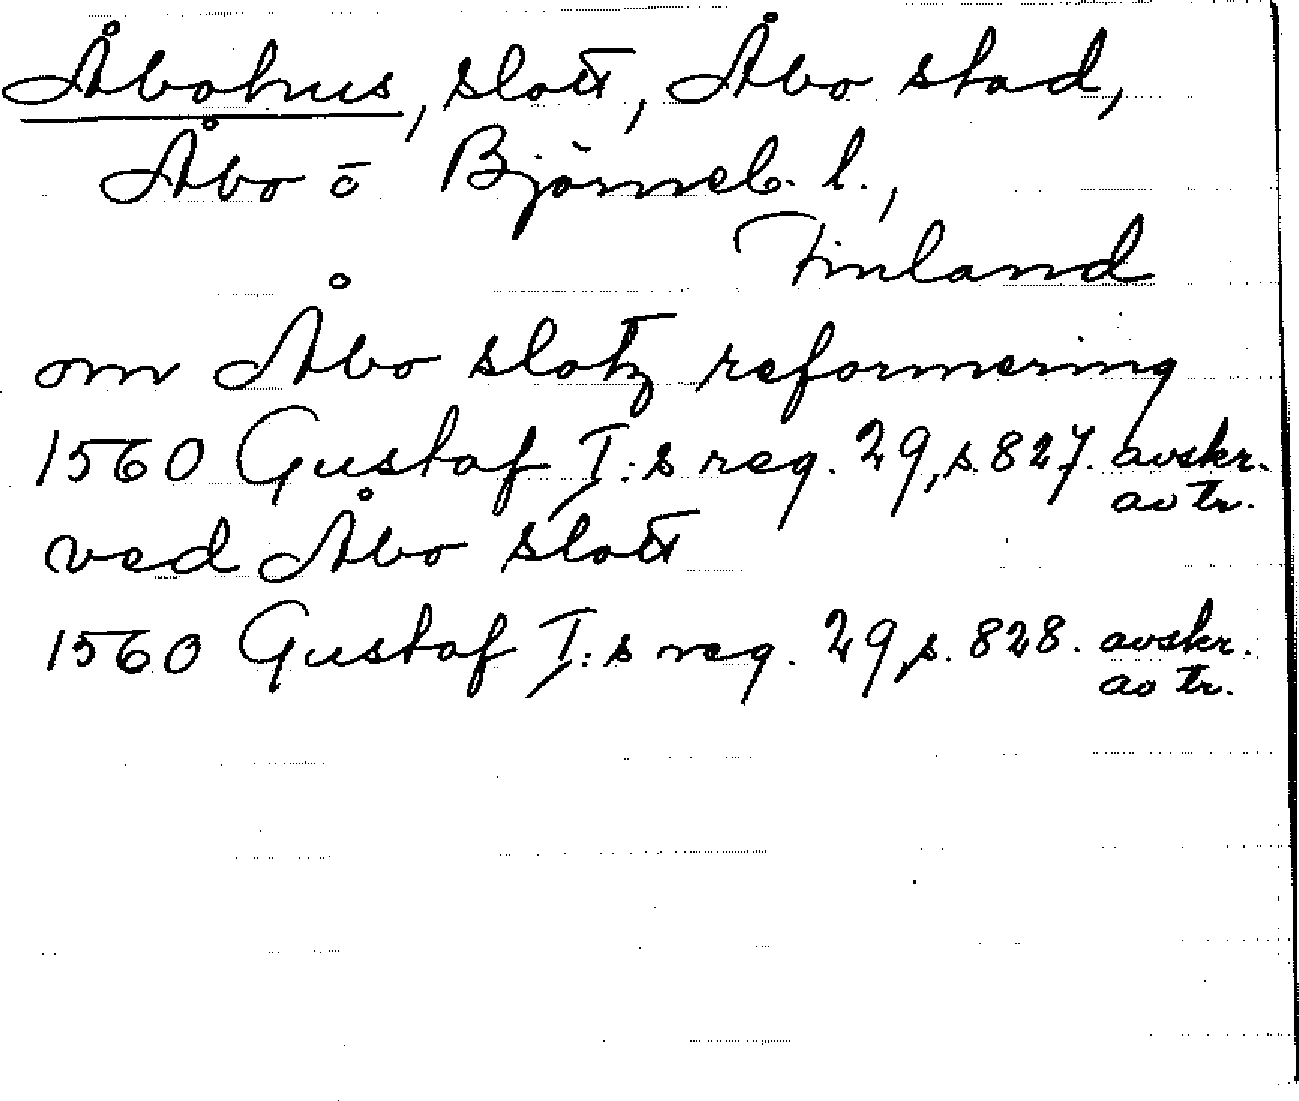 Åbohus, slott, Åbo stad,
Åbo ō Björneb. l.,
Finland
om Åbo slotz reformering
1560 Gustaf I:s reg. 29, s. 827. avskr. av tr.
ved Åbo slott
1560 Gustaf I:s reg. 29, s. 828. avskr. av tr.